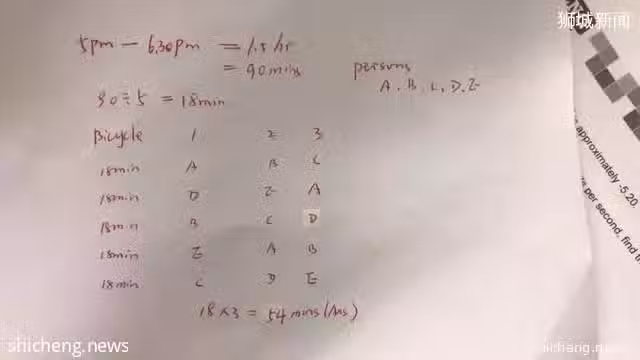 狮城新闻
5pm — 6.30pm = 1.5 hr
= 90 mins
persons
A, B, C, D, E
90 ÷ 5 = 18min
Bicycle 1 2 3
18min A B C
18min D E A
18min B C D
18min E A B
18min C D E
18 x 3 = 54 mins (Ans)
approximately -5.20.
per second, find t
shicheng.news
shicheng.news